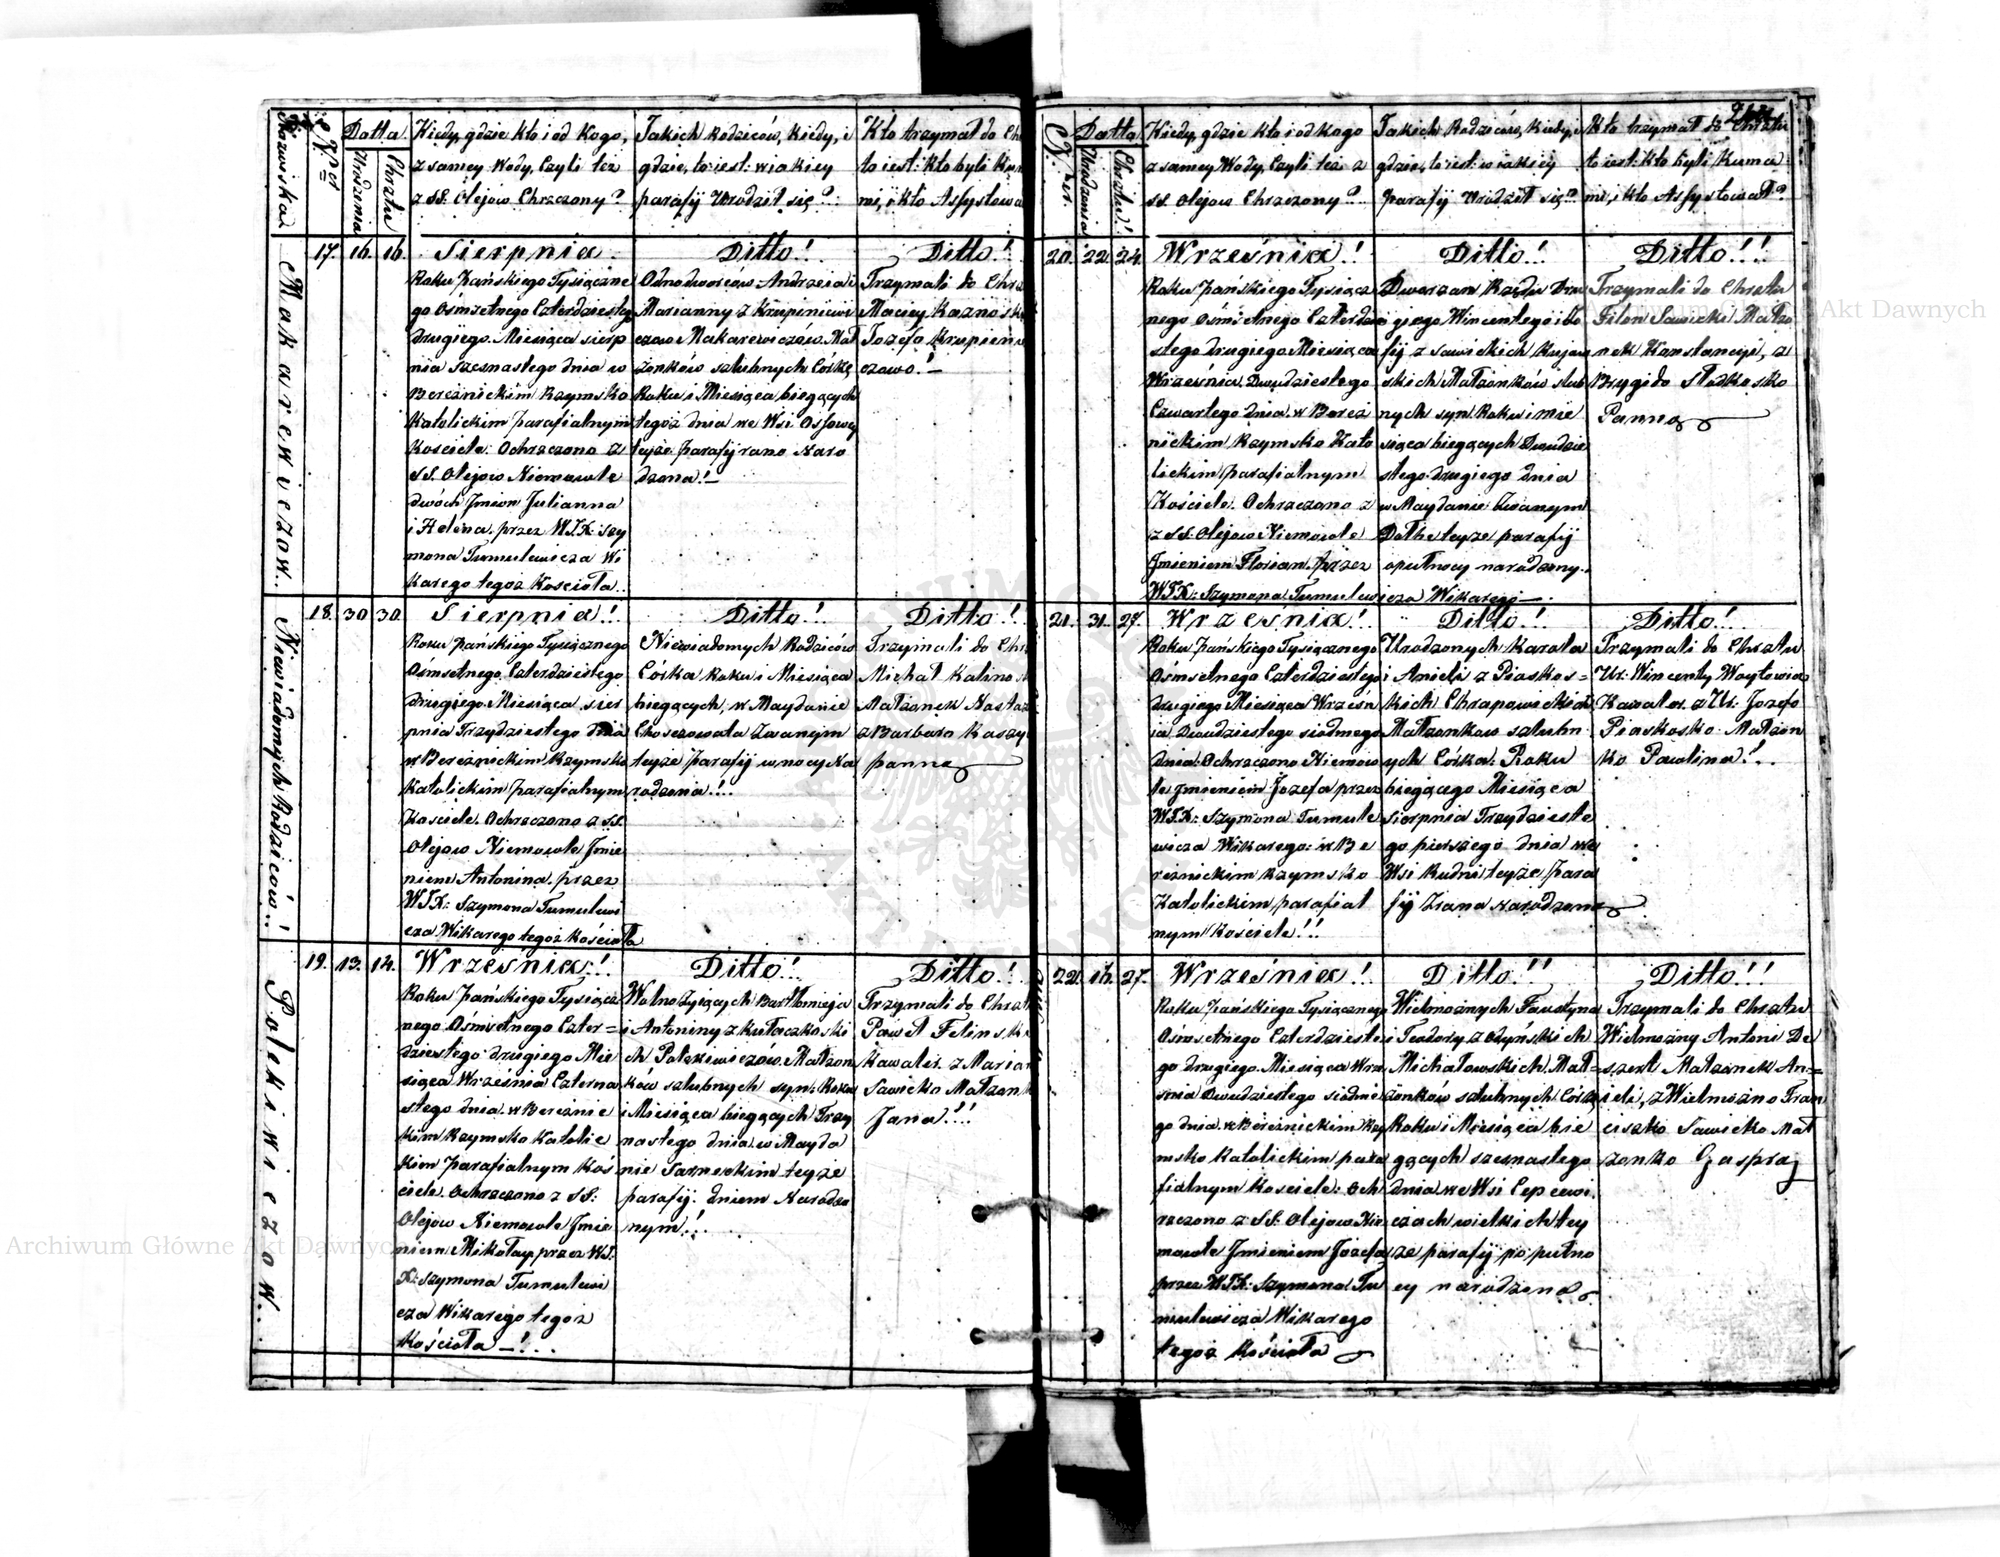 Datta
Urodzenia
Chrztu
Kiedy, gdzie kto i od Kogo,
z samey Wody, Czyli też
z SS. Olejow Chrzczony?
Jakich Rodziców, Kiedy, i
gdzie, to iest: w iakiey
parafij Urodził się?
Kto trzymał do Ch
to iest: Kto byli Kum
mi, i kto Assystowa
Makarewiczow.
17.
16.
16.
Sierpnia
Roku Pańskiego Tysiączne
go Ośmsetnego Czterdziesty
drugiego Miesiąca sierp
nia szesnastego dnia w
Bereźnickim Rzymsko
Katolickim parafialnym
Kościele. Ochrzczono z
SS. Olejow Niemowle
dwóch Jmion Julianna
i Helena. przez W.J.X: Szy
mona Tumulewicza Wi
karego tegoż Kościoła.
Ditto!
Odnodworców Andrzeia i
Marianny z Krupieniewi
czow Makarewiczów. Mał
żonków szlubnych Córkę
Roku i Miesiąca biegących
tegoż dnia we Wsi Ossowey
teyże parafij rano Naro
dzona!
Ditto!
Trzymali do Chrz
Maciey
Jozefo Krupieni
czowo!
Niewiadomych Rodziców!
18.
30
30.
Sierpnia!
Roku Pańskiego Tysiącznego
Ośmsetnego Czterdziestego
Drugiego Miesiąca sier
pnia Trzydziestego dnia
w Bereźnickim Rzymsko
Katolickim parafialnym
Kościele. Ochrzczono z SS.
Olejow Niemowle Jmie
niem Antonina. przez
W.J.X: Szymona Tumulewi
cza Wikarego tegoż Kościoła
Ditto!
Niewiadomych Rodziców
Córka Roku i Miesiąca
biegących, w Maydanie
Zwanym
teyże parafij w nocy Na
rodzona!
Ditto!
Trzymali do Chr
Michał Kalino
Małżonek Nasta
z Barbaro Kaszy
panno
Polekiwiczow.
19.
13.
14.
Września!
Roku Pańskiego Tysiącz
nego Ośmsetnego Czter=
dziestego drugiego Mie
siąca Września Czterna
stego dnia. w Bereźnic
kim Rzymsko Katolic
kim parafialnym Koś
ciele. Ochrzczono z SS:
Olejow Niemowle Jmie
niem Mikołay, przez W.J.
X: Szymona Tumulewi
cza Wikarego tegoż
Kościoła
Ditto!
Wolno Zyiących Bartłomieja
i Antoniny z Kułaczkoski
ch Polekiewiczów. Małżon
ków szlubnych syn. Roku
i Miesiąca biegących Trzy
nastego dnia w Mayda
nie teyże
parafij. dniem Narodzo
nym!
Ditto!
Trzymali do Chrzt
Paweł Felinsk
Kawaler. z Marian
Sawicko Małżonk
Jana!!!
Datta
Urodzenia
Chrztu
Kiedy, gdzie kto i od Kogo
z samey Wody, Czyli też z
SS. Olejow Chrzczony?
Jakich Rodziców, Kiedy, i
gdzie, to iest: w iakiey
parafij Urodził się?
Kto trzymał do Chrztu
to iest: Kto byli Kuma
mi, i kto Assystował?
20.
22.
24.
Września!
Roku Pańskiego Tysiącz
nego Ośmsetnego Czterdzie
stego drugiego Miesiąca
Września. Dwudziestego
Czwartego dnia. w Bereź
nickim Rzymsko Kato
lickim parafialnym
Kościele. Ochrzczono z
z SS: Olejow Niemowle
Jmieniem Florian. przez
W.J.X: Szymona Tumulewicza Wikarego
Ditto!
Wincentego i
z Sawickich Kujaw
skich Małżonków szlub
nych syn. Roku i mie
siąca biegących Dwudzie
stego drugiego dnia
w Maydanie Zwanym
teyże parafij
opułnocy narodzony.
Ditto!!
Trzymali do Chrztu
Filon Sawicki Małżo
nek Konstancyi, z
Brygido
Panno
21.
31.
27.
Września!
Roku Pańskiego Tysiącznego
Ośmsetnego Czterdziestego
drugiego Miesiąca Wrześn
ia Dwudziestego siodmego
dnia. Ochrzczono Niemow
le Jmieniem Jozefa przez
W.J.X: Szymona Tumule
wicza Wikarego: w Be
reźnickim Rzymsko
Katolickim parafial
nym Kościele!!
Ditto!
Urodzonych Karola
i Anieli z Piaskos=
kich Chrapowickich
Małżonkow szlubn
ych Córka. Roku
biegącego Miesiąca
Sierpnia Trzydzieste
go pierszego dnia we
Wsi Rudni teyże para
fij Zrana narodzona
Ditto!
Trzymali do Chrztu
Ur: Wincenty Woytowicz
Kawaler. z Ur: Jozefo
Piaskosko Małżon
ko Pawlina!
22.
16.
27.
Września!
Roku Pańskiego Tysiącznego
Ośmsetnego Czterdzieste
go drugiego Miesiąca Wrze
śnia Dwudziestego siodme
go dnia. w Bereźnickim Rzy
msko Katolickim para
fialnym Kościele. Och
rzczono z SS. Olejow Nie
mowle Jmieniem Jozefa
przez W.J.X: Szymona Tu
mulewicza Wikarego
tegoż Kościoła
Ditto!!
Wielmożnych Faustyna
i Teodory z Ożyńskich
Michałowskich. Mał=
żonków szlubnych Córkę
Roku i Miesiąca bie
gących szesnastego
dnia. we Wsi Cepcewi
czach wielkich tey
że parafij po pułno
cy narodzona
Ditto!!
Trzymali do Chrztu
Wielmożny Antoni De
szert Małżonek An=
ieli, z Wielmożno Fran
ciszko Sawicko Mał
żonko Gaspra
Archiwum Główne Akt Dawnych
Archiwum Główne Akt Dawnych